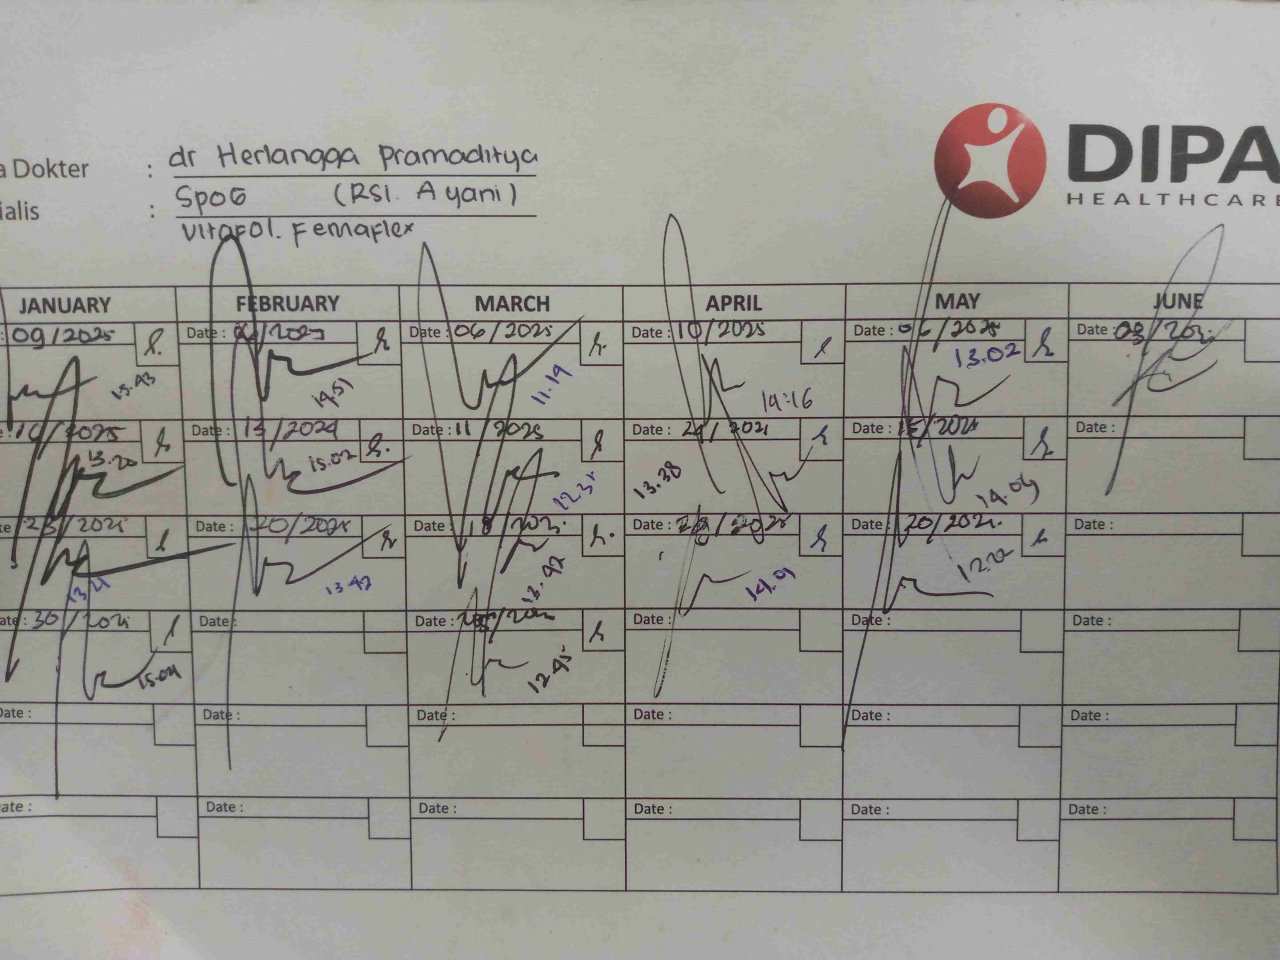 a Dokter : dr Herlangga Pramaditya
ialis : SpOG (RSI. A Yani)
Vitafol. Femaflex
DIPA
HEALTHCARE
JANUARY FEBRUARY MARCH APRIL MAY JUNE
: 09/2025 Date : /2025 Date : 06/2025 Date : 10/2025 Date : 06/2025 Date : 03/202
15.43 14.51 11.19 14:16 13.02
/2025 Date : 13/2024 Date : 11/2025 Date : 24/2021 Date : /2021 Date :
13.20 15.02 13.38 14.09
23/2021 Date : 20/2025 Date : 18/202 Date : /2025 Date : 20/202 Date :
13.21 13.42 13.42 12.20
ate : 30/2021 Date : Date : Date : Date : Date :
15.04 12.45
Date : Date : Date : Date : Date : Date :
ate : Date : Date : Date : Date : Date :